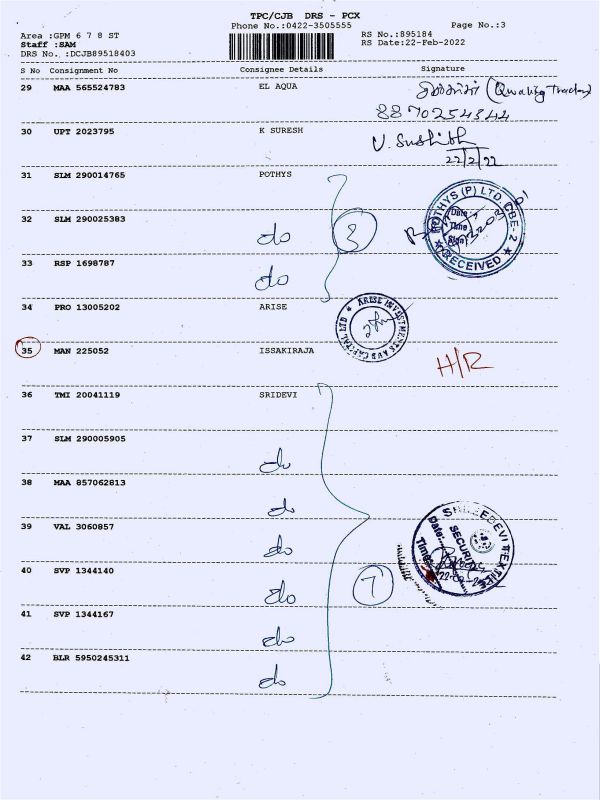 TPC/CJB DRS - PCX
Phone No.:0422-3505555
Page No.:3
Area :GPM 6 7 8 ST
RS No.:895184
Staff :SAM
RS Date:22-Feb-2022
DRS No. :DCJB89518403
S No Consignment No Consignee Details Signature
29 MAA 565524783 EL AQUA
8870254344
30 UPT 2023795 K SURESH
22/2/22
31 SLM 290014765 POTHYS
32 SLM 290025383 do 3
POTHYS (P) LTD. CBE-2
Date
Time
Sign
★ RECEIVED ★
33 RSP 1698787 do
34 PRO 13005202 ARISE
ARISE INVESTMENTS AND CAPITAL LTD ★
35 MAN 225052 ISSAKIRAJA H/R
36 TMI 20041119 SRIDEVI
37 SLM 290005905 do
38 MAA 857062813 do
39 VAL 3060857 do
SRIDEVI TEXTILE
SECURITY
Date:
Time:
40 SVP 1344140 do 7
41 SVP 1344167 do
42 BLR 5950245311 do